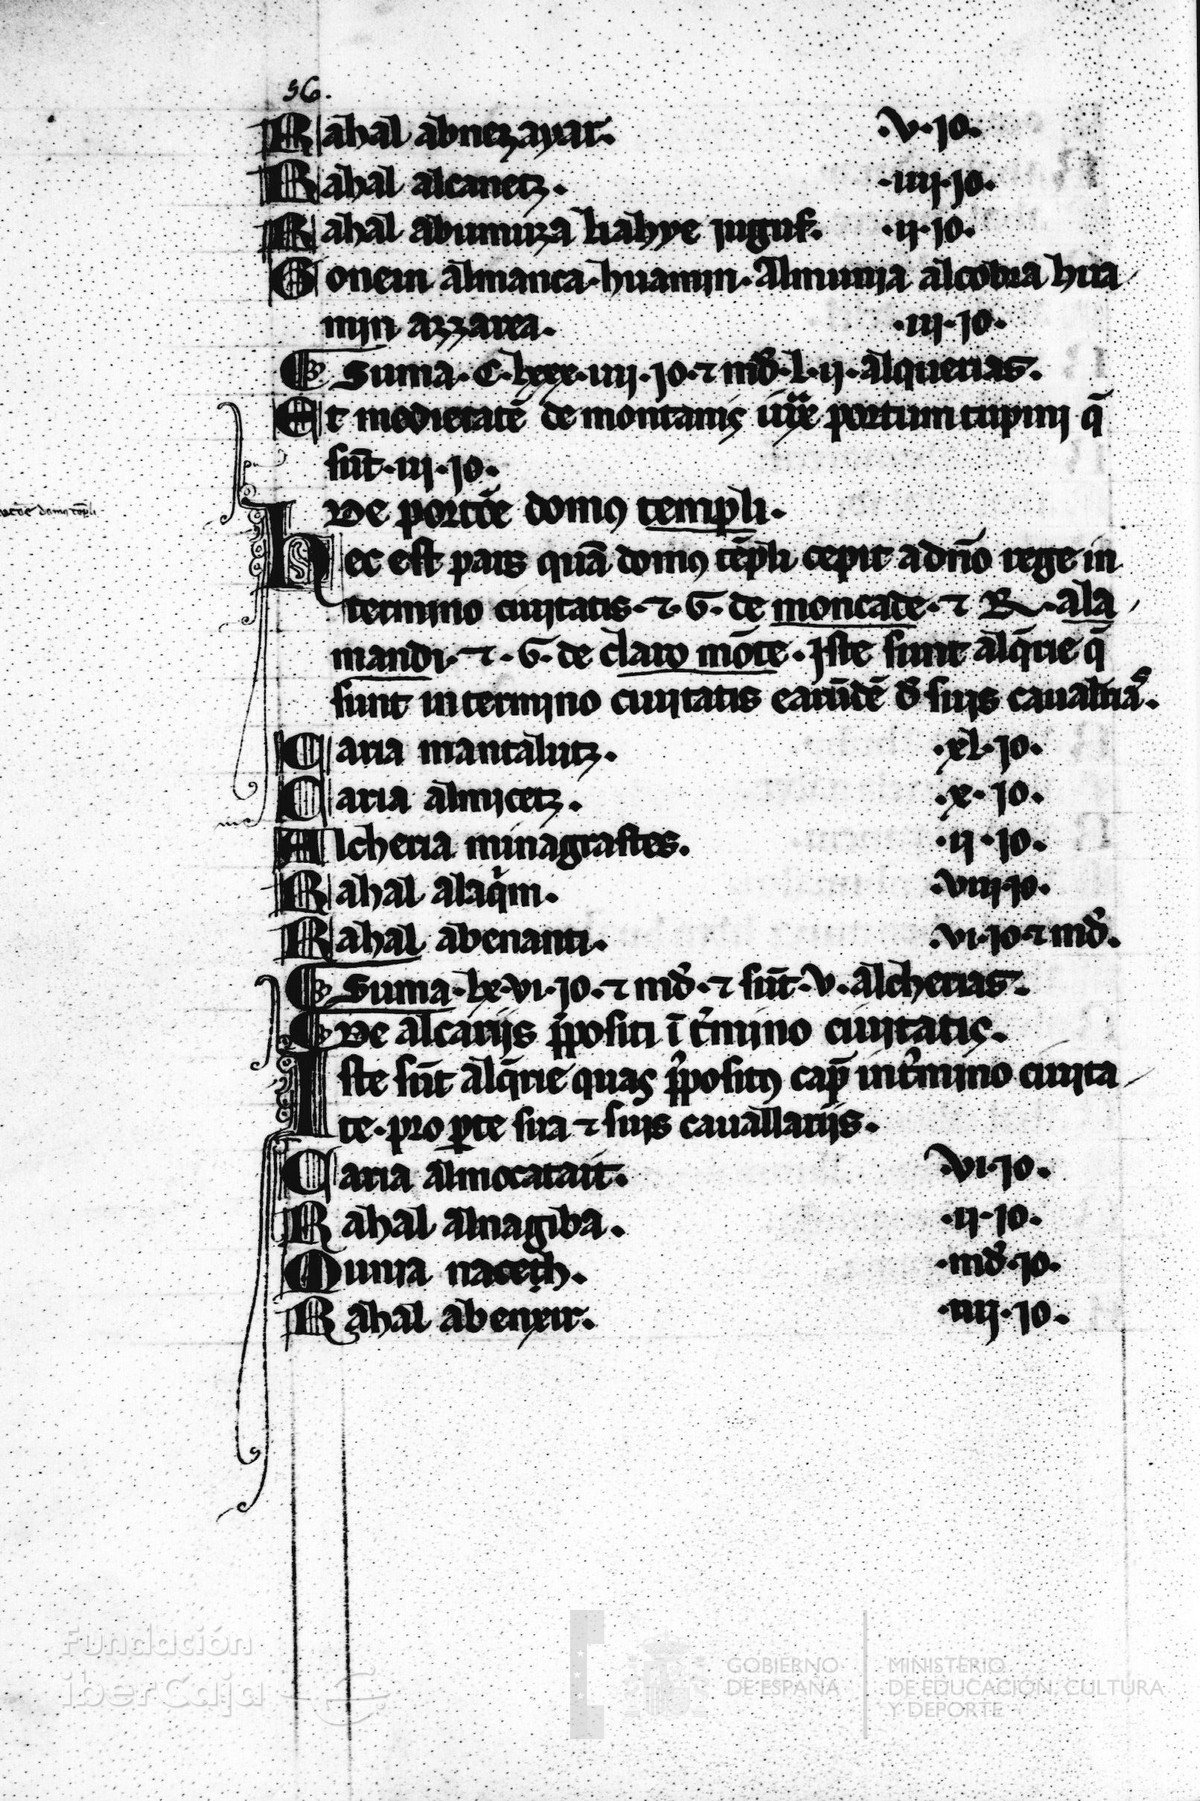 56.
Rahal abnezayar. ·v·jo·
Rahal alcanetz. ·iiij·jo·
Rahal abumuza liahye juguf. ·ij·jo·
Gonem almanca·huamin·Almunia alcobra hua
min azzarea. ·iij·jo·
Suma·C·lxxx·iiij·jo·⁊ md̃·l·ij·alquerias.
Et medietatē de montanis iuxͣ portum tupini q̄
sūt·iij·jo·
De portōe domus templi.
Hec est pars quā domus tēpli cepit a dño rege in
termino ciuitatis·⁊·G·de moncade·⁊ R·ala
mandi·⁊·G·de claro mōte·Iste sunt alq̄rie q̄
sunt in termino ciuitatis earūdē d̄ suis cauallariis.
Caria mantalutz. ·xl·jo·
Caria almicetz. ·x·jo·
Alcheria minagrastes. ·ij·jo·
Rahal alaqͥm. ·viij·jo·
Rahal abenanti. ·vi·jo·⁊ md̃.
Suma·lx·vi·jo·⁊ md̃·⁊ sūt·v·alcherias.
De alcariis p̄positi ī t̃mino ciuitatis.
Iste sūt alq̄rie quas p̄positus cap̄ in t̃mino ciuita
te·pro ꝑte sua ⁊ suis cauallariis.
Caria almocatait. ·vi·jo·
Rahal alnagiba. ·ij·jo·
Munia naceth. ·md̃·jo·
Rahal abenxir. ·iiij·jo·
Fundación
iberCaja
GOBIERNO
DE ESPAÑA
MINISTERIO
DE EDUCACIÓN, CULTURA
Y DEPORTE